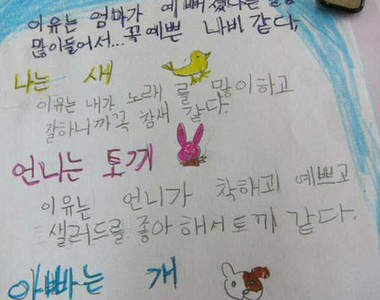 이유는 엄마가 예뻐졌다는 말을
많이들어서... 꼭 예쁜 나비 같다,
나는 새
이유는 내가 노래 를 많이하고
잘하니까꼭 참새 같다.
언니는 토끼
이유는 언니가 착해고 예쁘고
샐러드를 좋아 해서 토끼 같다.
아빠는 개